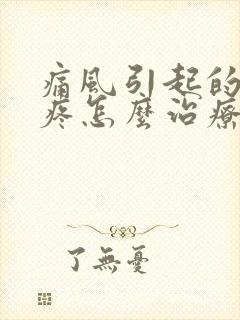 痛風引起的
疼怎麼治療
了無憂